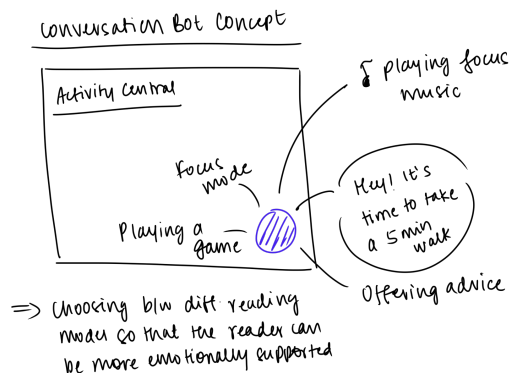 Conversation Bot Concept
Activity Central
♪ playing focus
music
Focus
mode
Playing a
game
Hey! It's
time to take
a 5 min
walk
Offering advice
=> Choosing b/w diff. reading
modes so that the reader can
be more emotionally supported